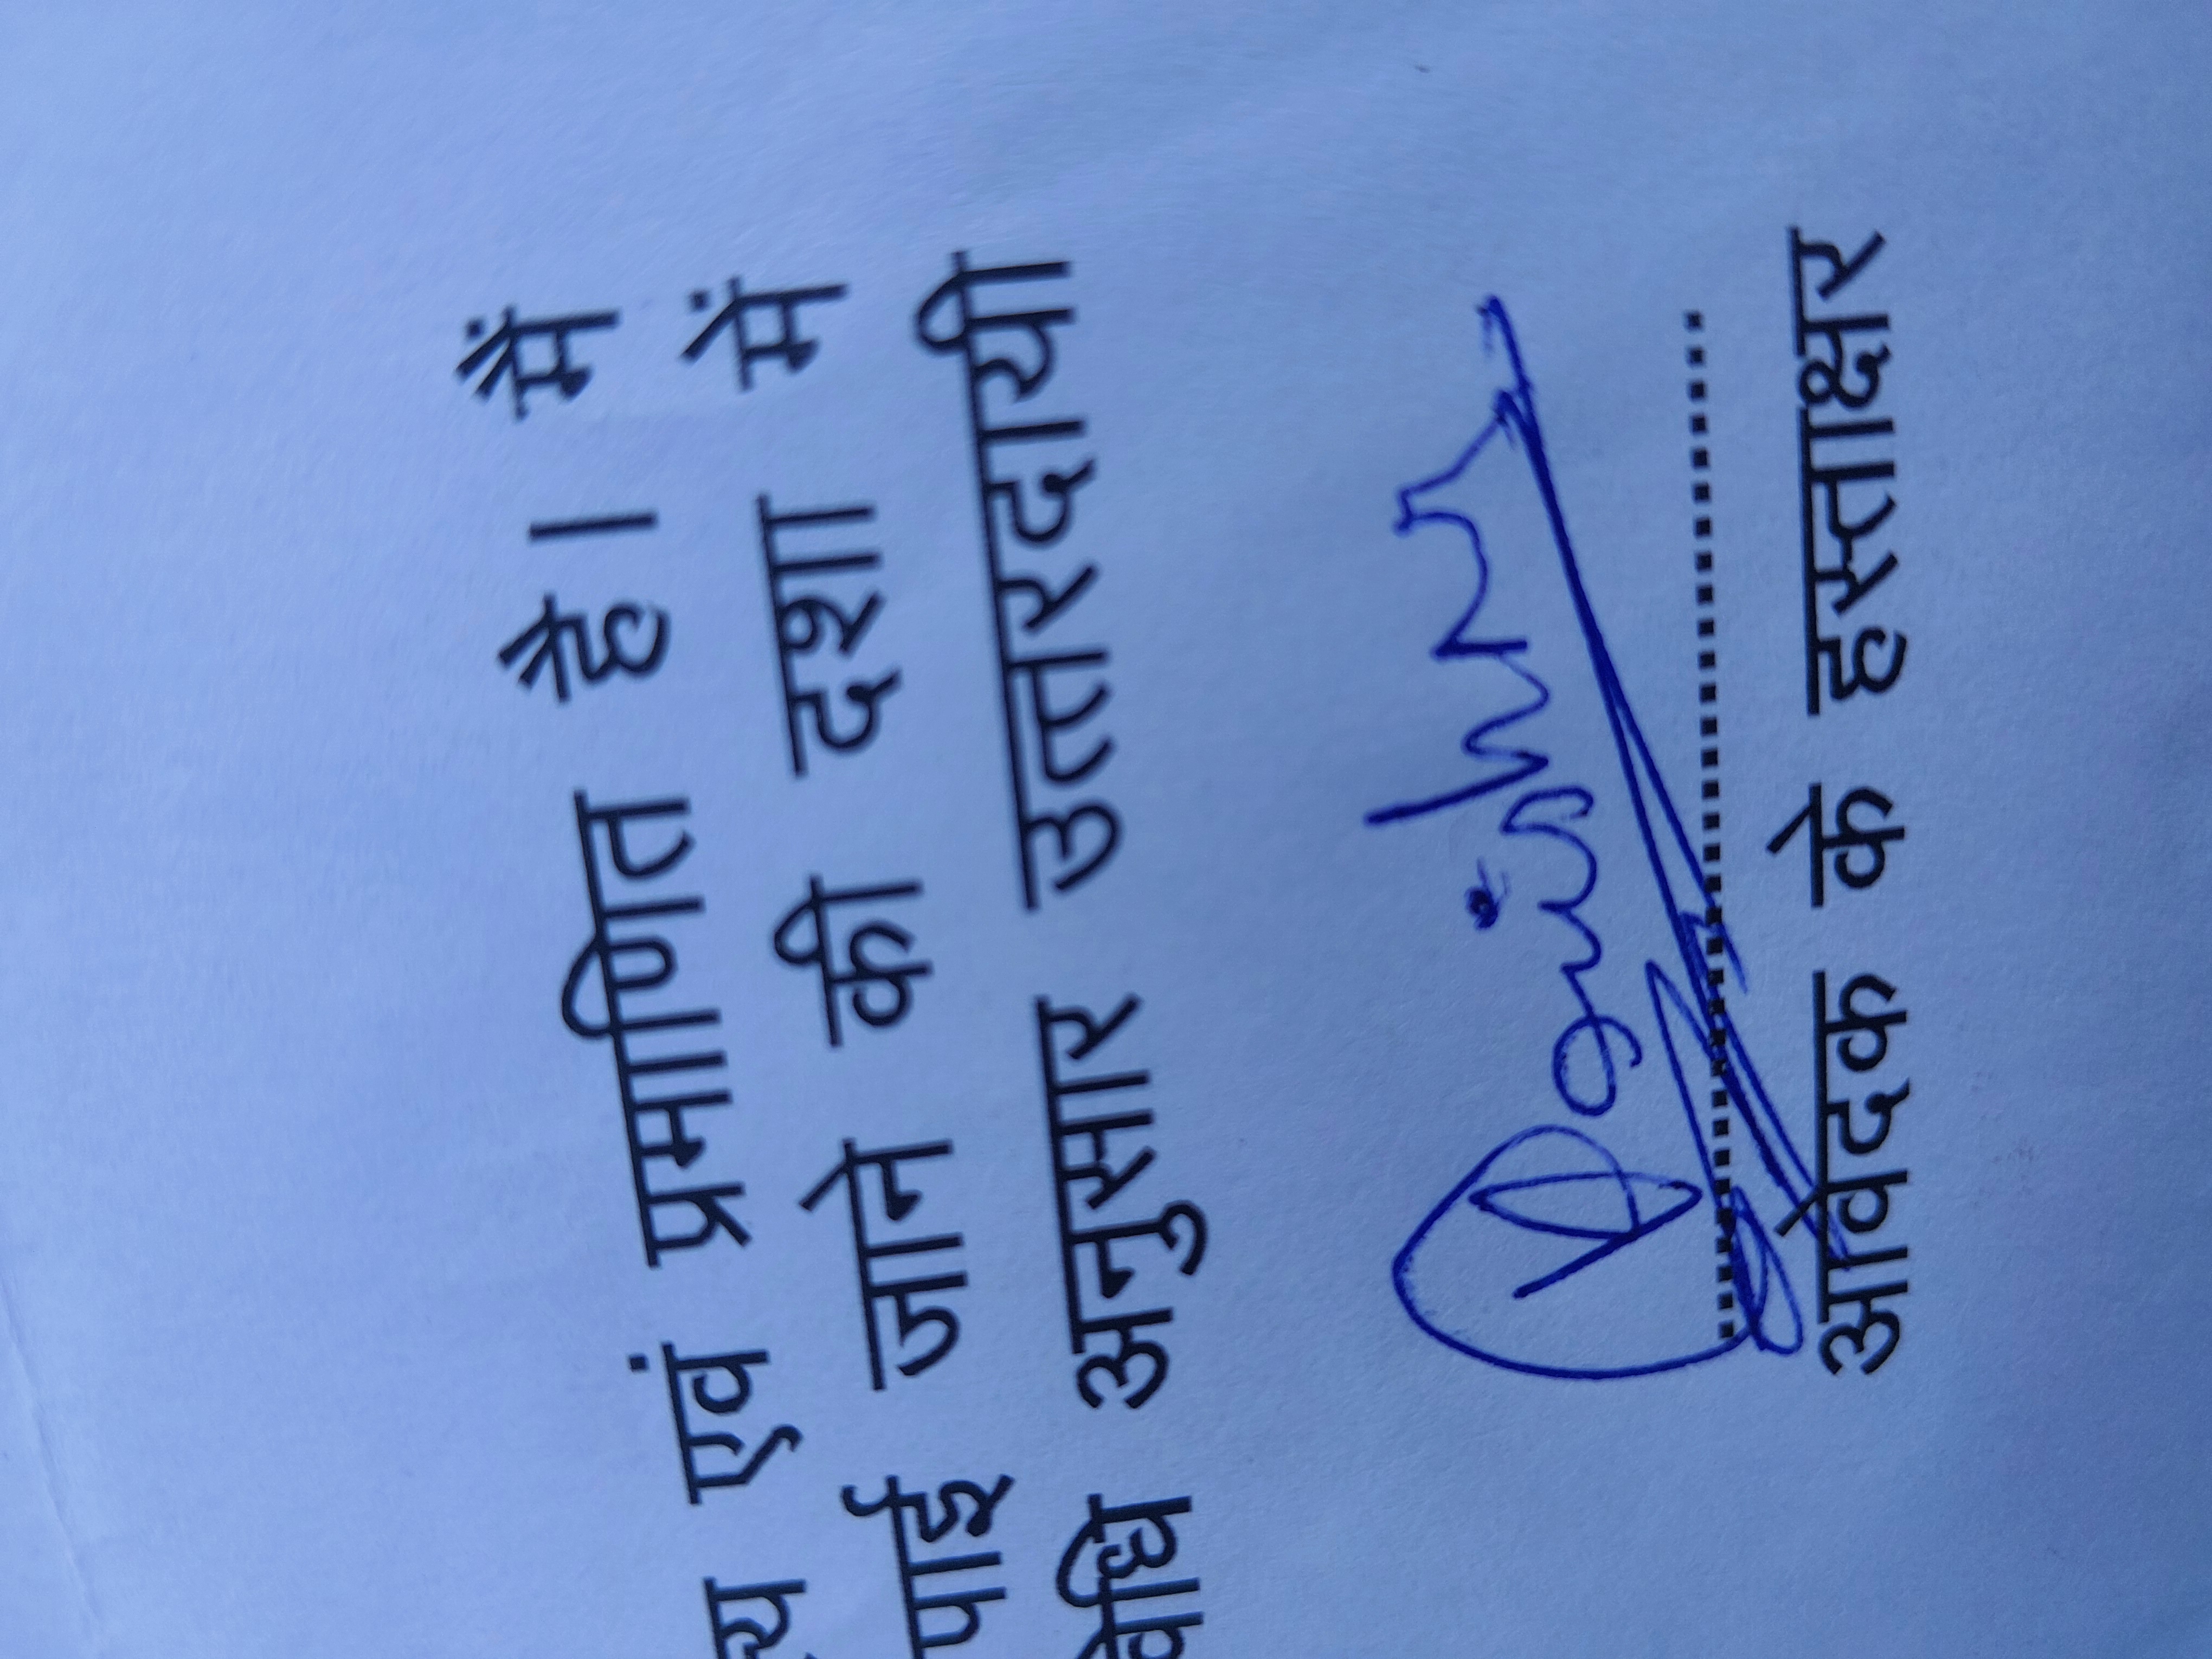 एवं प्रमाणित है। मैं
पाई जाने की दशा में
विधि अनुसार उत्तरदायी
आवेदक के हस्ताक्षर